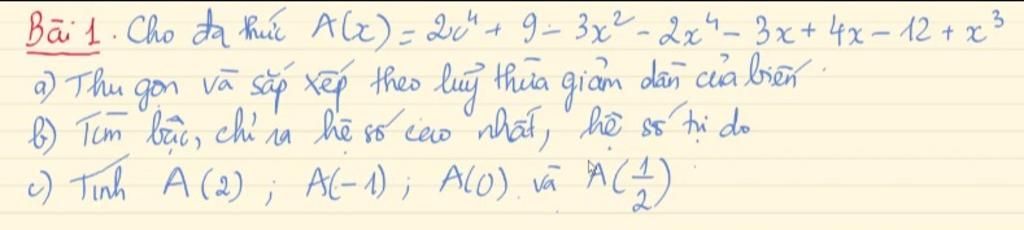 Bài 1. Cho đa thức A(x) = 2x⁴ + 9 - 3x² - 2x⁴ - 3x + 4x - 12 + x³
a) Thu gọn và sắp xếp theo luỹ thừa giảm dần của biến.
b) Tìm bậc, chỉ ra hệ số cao nhất, hệ số tự do
c) Tính A(2); A(-1); A(0) và A(1/2)